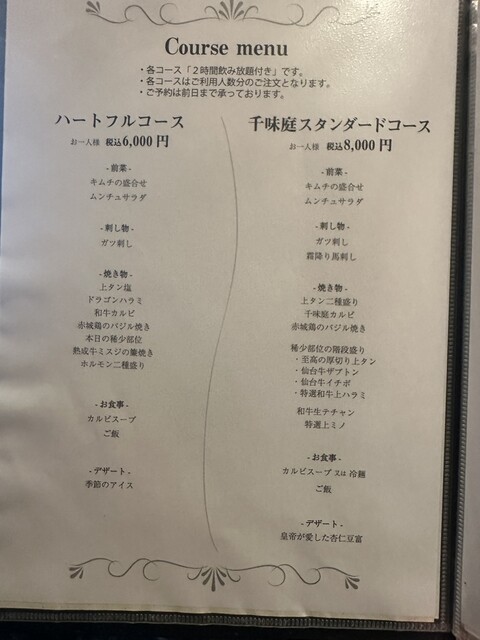 Course menu
・各コース「２時間飲み放題付き」です。
・各コースはご利用人数分のご注文となります。
・ご予約は前日まで承っております。
ハートフルコース
お一人様 税込6,000円
- 前菜 -
キムチの盛合せ
ムンチュサラダ
- 刺し物 -
ガツ刺し
- 焼き物 -
上タン塩
ドラゴンハラミ
和牛カルビ
赤城鶏のバジル焼き
本日の稀少部位
熟成牛ミスジの簾焼き
ホルモン二種盛り
- お食事 -
カルビスープ
ご飯
- デザート -
季節のアイス
千味庭スタンダードコース
お一人様 税込8,000円
- 前菜 -
キムチの盛合せ
ムンチュサラダ
- 刺し物 -
ガツ刺し
霜降り馬刺し
- 焼き物 -
上タン二種盛り
千味庭カルビ
赤城鶏のバジル焼き
稀少部位の階段盛り
・至高の厚切り上タン
・仙台牛ザブトン
・仙台牛イチボ
・特選和牛上ハラミ
和牛生テチャン
特選上ミノ
- お食事 -
カルビスープ又は 冷麺
ご飯
- デザート -
皇帝が愛した杏仁豆富